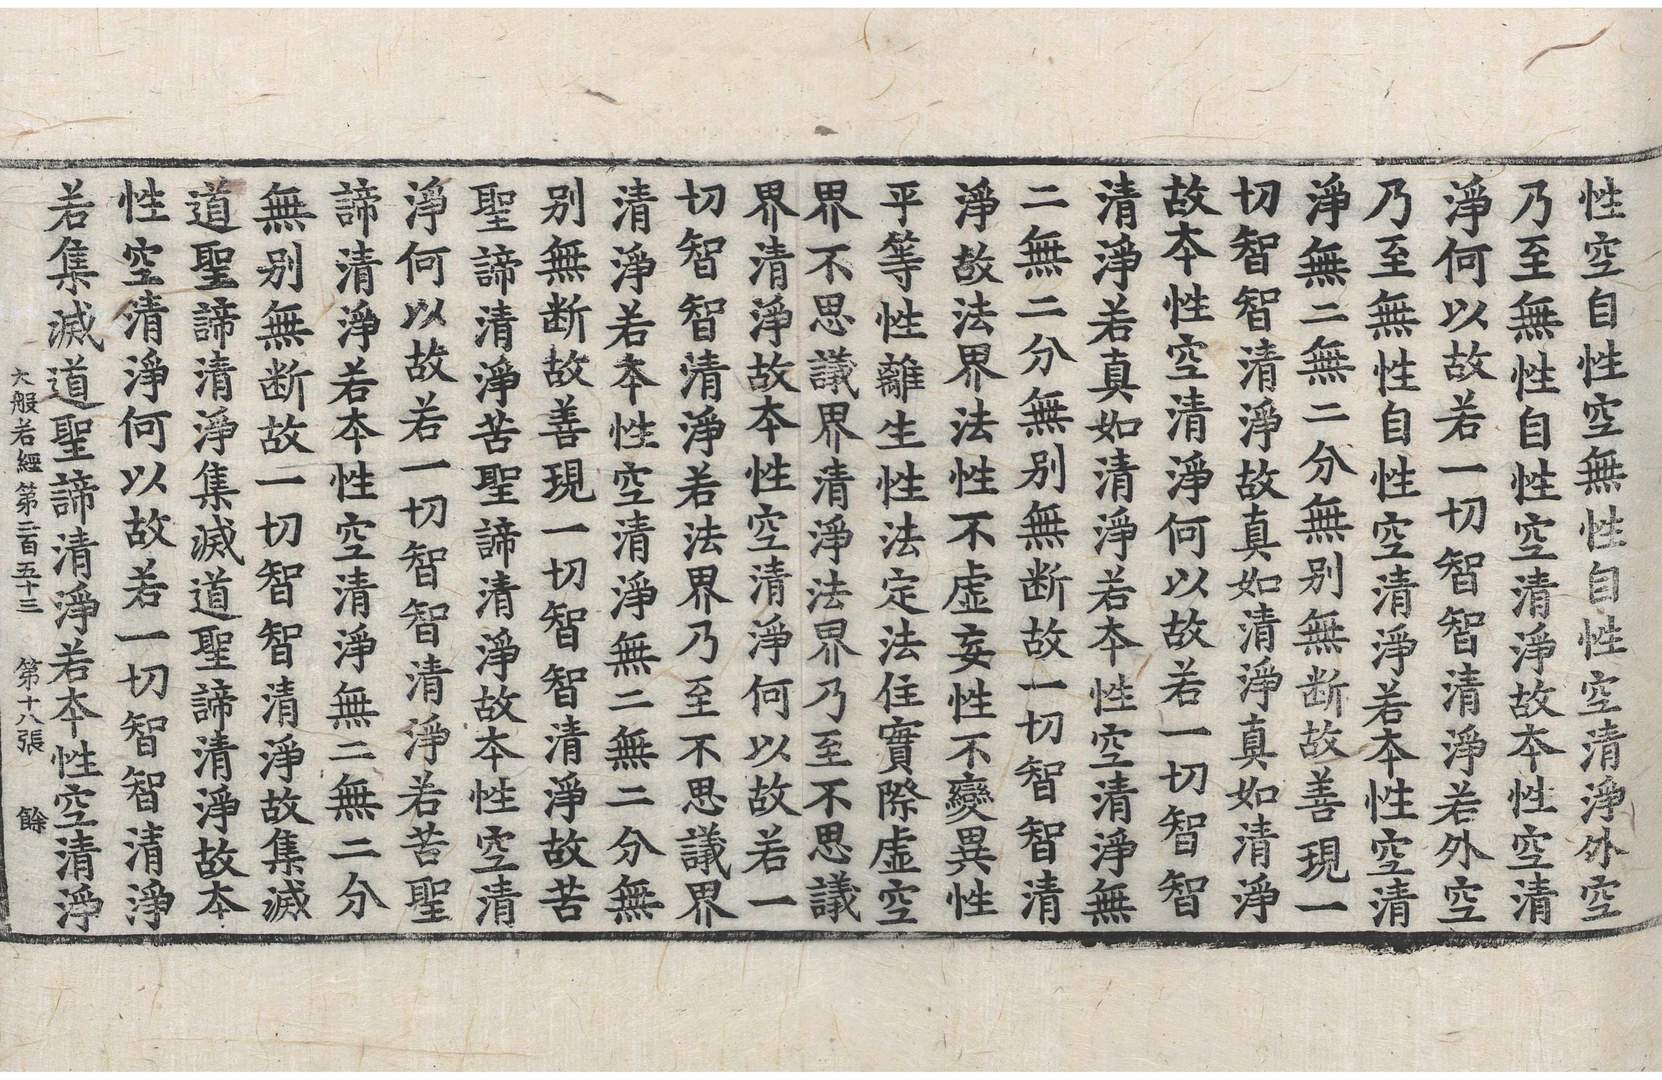 性空自性空無性自性空清淨外空
乃至無性自性空清淨故本性空清
淨何以故若一切智智清淨若外空
乃至無性自性空清淨若本性空清
淨無二無二分無別無断故善現一
切智智清淨故真如清淨真如清淨
故本性空清淨何以故若一切智智
清淨若真如清淨若本性空清淨無
二無二分無別無断故一切智智清
淨故法界法性不虛妄性不變異性
平等性離生性法定法住實際虛空
界不思議界清淨法界乃至不思議
界清淨故本性空清淨何以故若一
切智智清淨若法界乃至不思議界
清淨若本性空清淨無二無二分無
別無断故善現一切智智清淨故苦
聖諦清淨苦聖諦清淨故本性空清
淨何以故若一切智智清淨若苦聖
諦清淨若本性空清淨無二無二分
無別無断故一切智智清淨故集滅
道聖諦清淨集滅道聖諦清淨故本
性空清淨何以故若一切智智清淨
若集滅道聖諦清淨若本性空清淨
大般若經第二百五十三 第十八張 餘